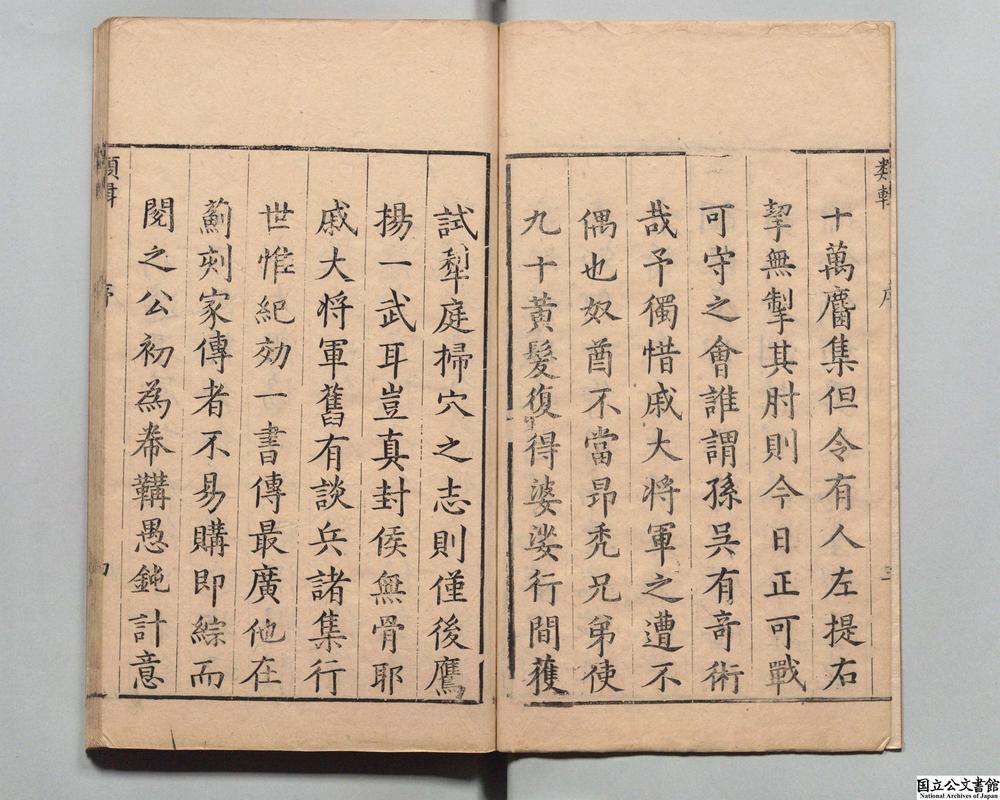 十萬麕集但令有人左提右
挈無掣其肘則今日正可戰
可守之會誰謂孫吳有竒術
哉予獨惜戚大将軍之遭不
偶也奴酋不當昂禿兄弟使
九十黃髪復得婆娑行間獲
試犂庭掃穴之志則僅後鷹
揚一武耳豈真封侯無骨耶
戚大将軍舊有談兵諸集行
世惟紀効一書傳最廣他在
薊刻家傳者不易購即綜而
閱之公初為帣鞲愚鈍計意
類輯
序
三
四
国立公文書館
National Archives of Japan